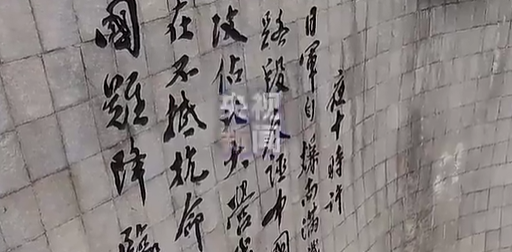 夜十時許
日軍自爆南滿
路段反誣中國
攻佔北大營
在不抵抗命
國難降臨
央视
闻